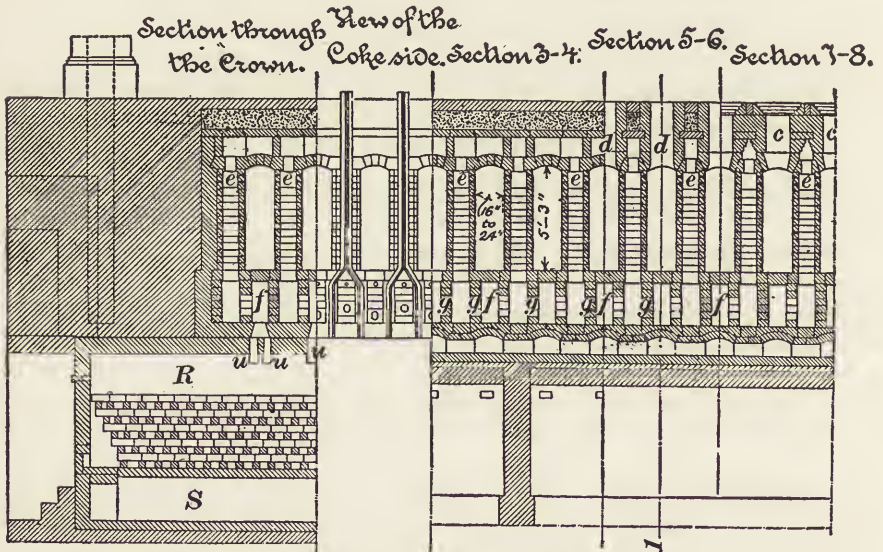 Section through
the Crown.
View of the
Coke side.
Section 3-4.
Section 5-6.
Section 7-8.
d d c c
e e e e e e e
(16"
to
24")
5'-3"
f g g f g g f g f
u u u
R
S
1